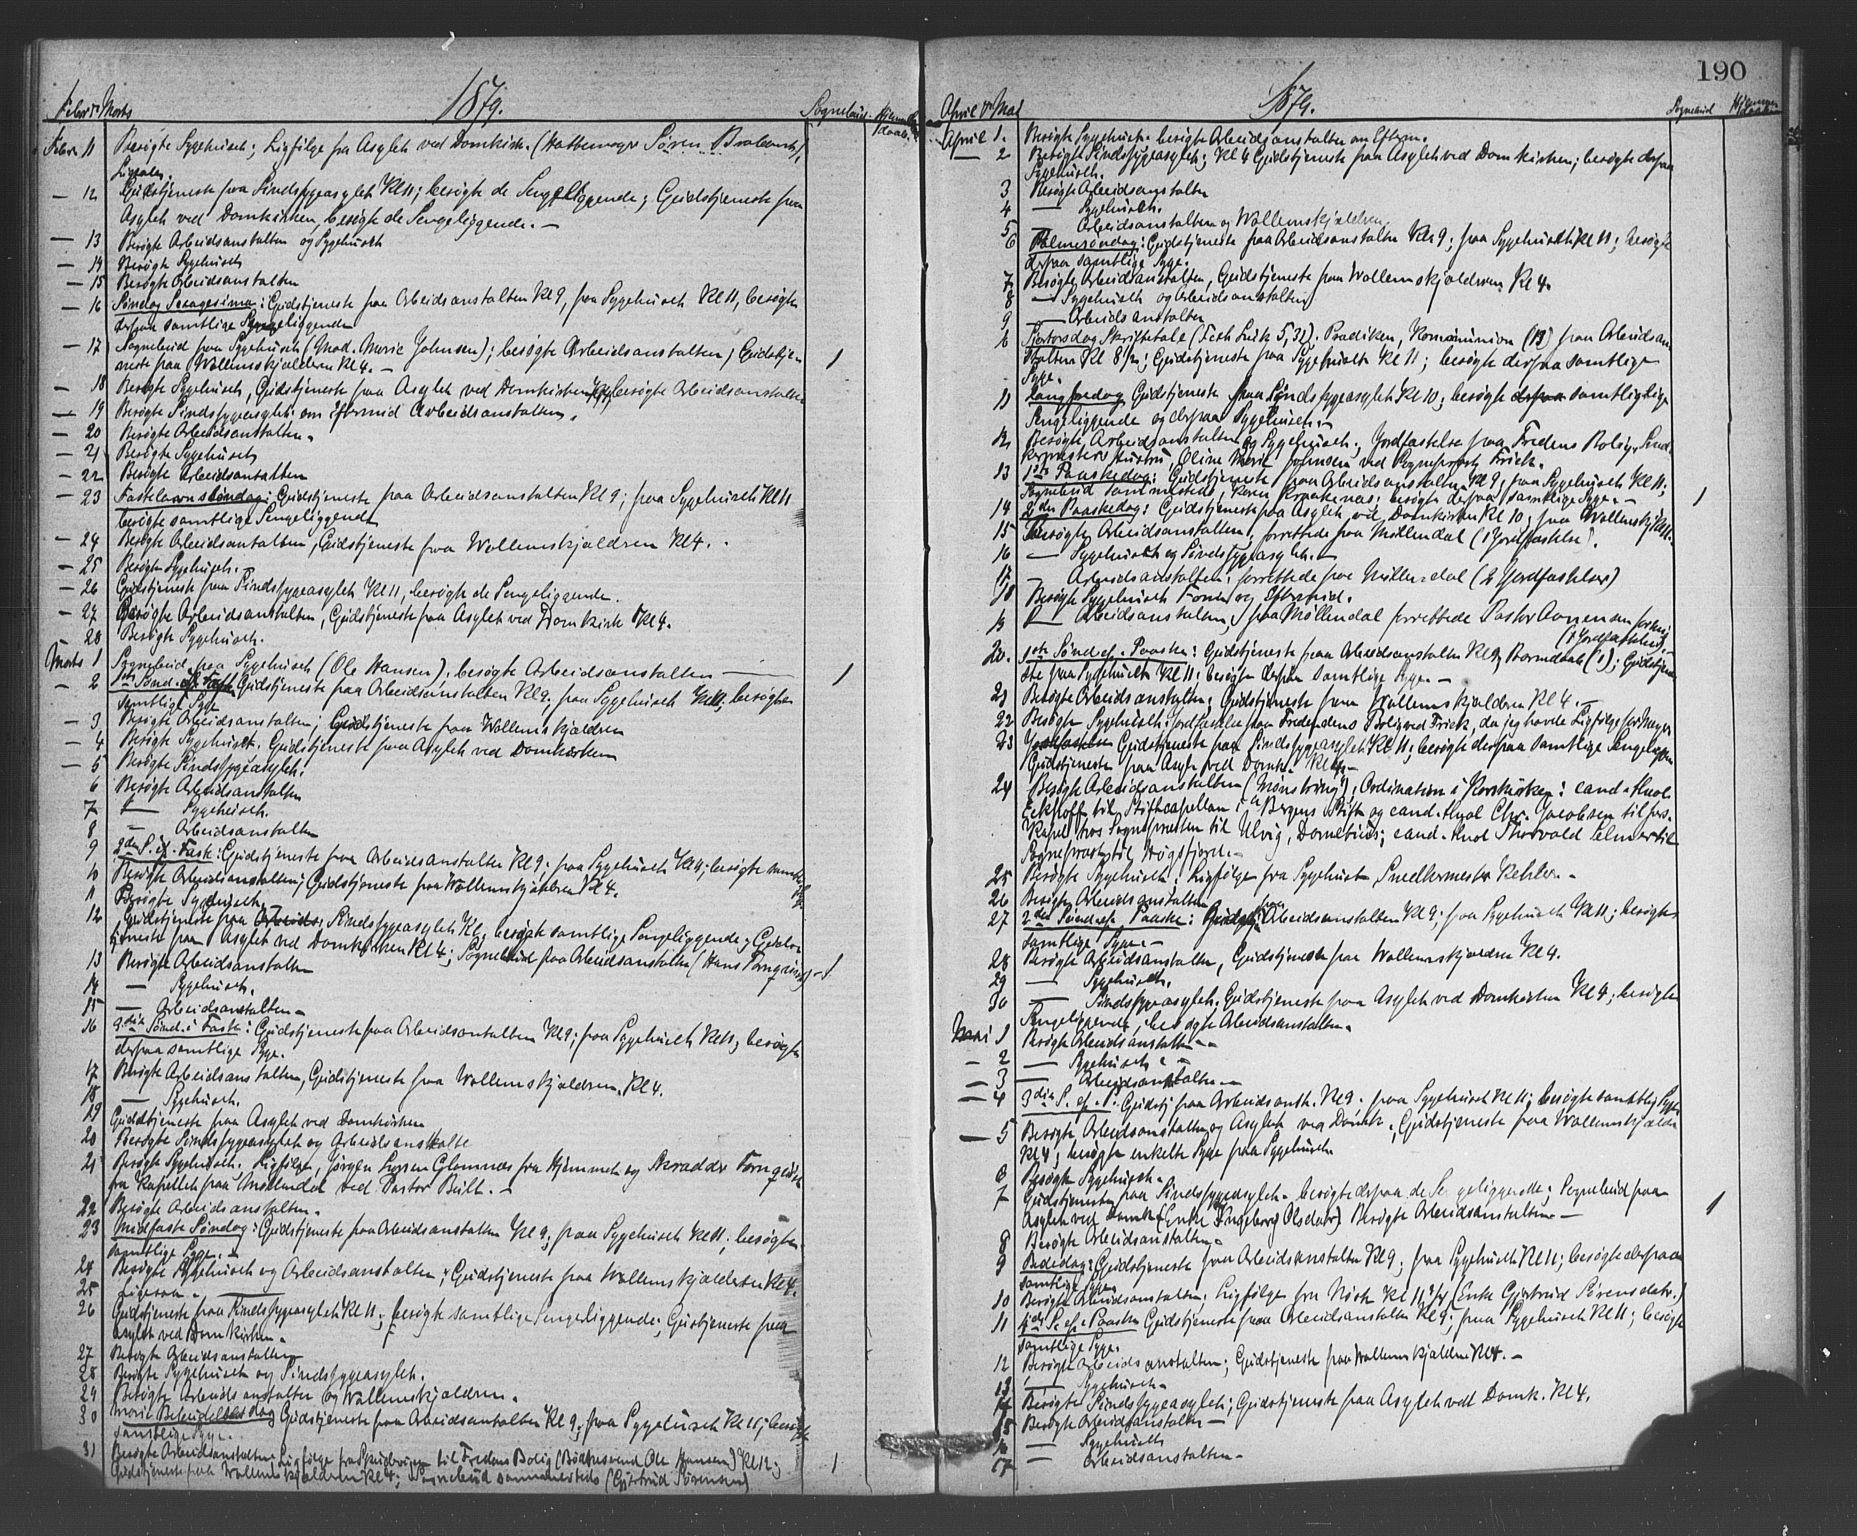 Febr & Marts 1879. Sognebud. Hjemmedaab.
Febr 11 Besøgte Sygehuset; Ligfølge fra Asylet ved Domkirk. (Søren
Ligtale.
— 12 Gudstjeneste paa Sindssygeasylet Kl 11; besøgte de Sengeliggende; Gudstjeneste paa
Asylet ved Domkirken, besøgte de Sengeliggende. —
— 13 Besøgte Arbeidsanstalten og Sygehuset
— 14 Besøgte Sygehuset
— 15 Besøgte Arbeidsanstalten
— 16 Søndag Sexagesima: Gudstjeneste paa Arbeidsanstalten Kl 9, paa Sygehuset Kl 11, besøgte
derpaa samtlige Sengeliggende
— 17 Sognebud paa Sygehuset (Mad. Marie Johnsen); besøgte Arbeidsanstalten; Gudstje- 1
neste paa Wollemskjældren Kl 4. —
— 18 Besøgte Sygehuset, Gudstjeneste paa Asylet ved Domkirken, besøgte Arbeidsanstalten
— 19 Besøgte Sindssygeasylet om Formid Arbeidsanstalten.
— 20 Besøgte Arbeidsanstalten.
— 21 Besøgte Sygehuset
— 22 Besøgte Arbeidsanstalten
— 23 Fastelavnssøndag: Gudstjeneste paa Arbeidsanstalten Kl 9; paa Sygehuset Kl 11
besøgte samtlige Sengeliggende
— 24 Besøgte Arbeidsanstalten, Gudstjeneste paa Wollemskjældren Kl 4. .
— 25 Besøgte Sygehuset.
— 26 Gudstjeneste paa Sindssygeasylet Kl 11, besøgte de Sengeliggende.
— 27 Besøgte Arbeidsanstalten, Gudstjeneste paa Asylet ved Domkirk Kl 4.
28 Besøgte Sygehuset.
Marts 1 Sognebud paa Sygehuset (Ole Hansen), besøgte Arbeidsanstalten — 1
— 2 1ste Sønd. i Faste Gudstjeneste paa Arbeidsanstalten Kl 9, paa Sygehuset Kl 11, besøgte
samtlige Syge
— 3 Besøgte Arbeidsanstalten; Gudstjeneste paa Wollemskjældren
— 4 Besøgte Sygehuset. Gudstjeneste paa Asylet ved Domkirken
— 5 Besøgte Sindssygeasylet.
6 Besøgte Arbeidsanstalten
7 — Sygehuset.
8 — Arbeidsanstalten
9 2den S. i Fast: Gudstjeneste paa Arbeidsanstalten Kl 9; paa Sygehuset Kl 11; besøgte samtl.
10 Besøgte Arbeidsanstalten; Gudstjeneste paa Wollemskjældren Kl 4.
11 Besøgte Sygehuset
12 Gudstjeneste paa Sindssygeasylet Kl, besøgte samtlige Sengeliggende; Gudst-
tjeneste paa Asylet ved Domkirken Kl 4; Sognebud paa Arbeidsanstalten (Hans Tornqvist) — 1
13 Besøgte Arbeidsanstalten
14 — Sygehuset.
15 — Arbeidsanstalten —
16 3die Sønd. i Fast: Gudstjeneste paa Arbeidsanstalten Kl 9; paa Sygehuset Kl 11; besøgte
derpaa samtlige Syge.
17 Besøgte Arbeidsanstalten, Gudstjeneste paa Wollemskjældren Kl 4.
18 — Sygehuset.
19 Gudstjeneste paa Asylet ved Domkirken
20 Besøgte Sindssygeasylet og Arbeidsanstalte
21 Besøgte Sygehuset. Ligfølge, Jørgen Glomnæs fra Hjemmet og Skrædder Tornqvist
fra Kapellet paa ved Pastor Bull. —
22 Besøgte Arbeidsanstalten.
23 Midfaste Søndag: Gudstjeneste paa Arbeidsanstalten Kl 9; paa Sygehuset Kl 11; besøgte
samtlige Syge. —
24 Besøgte Sygehuset og Arbeidsanstalten; Gudstjeneste paa Wollemskjælderen Kl 4.
25 Ligesaa —
26 Gudstjeneste paa Sindssygeasylet Kl 11; besøgte samtlige Sengeliggende; Gudstjeneste paa
Asylet ved Domkirken.
27 Besøgte Arbeidsanstalten
28 Besøgte Sygehuset og Sindssygeasylet.
29 Besøgte Arbeidsanstalten og Wollemskjældren.
30 Mariæ Bebudelsesdag Gudstjeneste paa Arbeidsanstalten Kl 9; paa Sygehuset Kl 11; besøgte
samtlige Syge.
31 Besøgte Arbeidsanstalten; Ligfølge til Fredens Bolig (Ole Hansen) Kl 12;
Gudstjeneste paa Wollemskjælderen Kl 4; Sognebud sammesteds (Gjertrud Sørensen) 1
190
April & Mai 1879. Sognebud Hjemmedaab
April 1. Besøgte Sygehuset. besøgte Arbeidsanstalten om Efterm.
— 2 Besøgte Sindssygeasylet; Kl 4 Gudstjeneste paa Asylet ved Domkirken; besøgte derpaa
Sygehuset.
3 Besøgte Arbeidsanstalten
4 — Sygehuset.
5 — Arbeidsanstalten og Wollemskjældren
6 Palmesøndag: Gudstjeneste paa Arbeidsanstalten Kl 9; paa Sygehuset Kl 11; besøgte
derpaa samtlige Syge.
7 Besøgte Arbeidsanstalten, Gudstjeneste paa Wollemskjældren Kl 4.
8 — Sygehuset og Arbeidsanstalten
9 — Arbeidsanstalten
10 Skjertorsdag Skriftetale, Prædiken, Kommunion (13) paa Arbeidsan-
stalten Kl 8½; Gudstjeneste paa Sygehuset Kl 11; besøgte derpaa samtlige
Syge.
11 Langfredag Gudstjeneste paa Sindssygeasylet Kl 10; besøgte derpaa samtlige
Sengeliggende og derpaa Sygehuset. —
12 Besøgte Arbeidsanstalten og Sygehuset; Jordfæstelse paa Fredens Bolig,
Hustru, Oline Marie Johnsen ved Sognepræst Frick.
13 1ste Paaskedag: Gudstjeneste paa Arbeidsanstalten Kl 9; paa Sygehuset Kl 11;
Sognebud sammesteds, Karen besøgte derpaa samtlige Syge. — 1
14 2den Paaskedag: Gudstjeneste paa Asylet ved Domkirken Kl 10, paa Wollemskj Kl 11.
15 Besøgte Arbeidsanstalten, forrettede paa Møllendal (1 Jordfæstelse).
16 — Sygehuset og Sindssygeasylet. —
17 — Arbeidsanstalten, forrettede paa Møllendal (2 Jordfæstelser)
18 Besøgte Sygehuset Form og Eftermid.
19 — Arbeidsanstalten, paa Møllendal forrettede Pastor for mig
(1 Jordfæstelse).
20. 1ste Sønd. ef. Paaske: Gudstjeneste paa Arbeidsanstalten Kl 9, Barnedaab (1); Gudstjene-
ste paa Sygehuset Kl 11; besøgte derpaa samtlige Syge —
21 Besøgte Arbeidsanstalten; Gudstjeneste paa Wollemskjældren Kl 4. —
22 Besøgte Sygehuset; Jordfæstelse paa Fredens Bolig ved Frick, da jeg havde Ligfølge for
23 Gudstjeneste paa Sindssygeasylet Kl 11; besøgte derpaa samtlige Sengeligg.
Gudstjeneste paa Asyl ved Domk. Kl 4. —
24 Besøgte Arbeidsanstalten (Mønstring), Ordination i Korskirken: cand. theol
Eckhoff til Stiftscapellan i Bergens Stift og cand. theol Chr. Jacobsen til pers.
Kapel hos Sognepresten til Ulvig, cand. theol Thorvald til
Sogneprest til Høgsfjord. —
25 Besøgte Sygehuset; Ligfølge fra Sygehuset, Smedkermester
26 Besøgte Arbeidsanstalten
27 2den Sønd. ef. Paaske: Gudstj. Arbeidsanstalten Kl 9; paa Sygehuset Kl 11; besøgte
samtlige Syge. —
28 Besøgte Arbeidsanstalten, Gudstjeneste paa Wollemskjældren Kl 4.
29 — Sygehuset.
30 — Sindssygeasylet. Gudstjeneste paa Asylet ved Domkirken Kl 4; besøgte
Sengeliggende, besøgte Arbeidsanstalten.
Mai 1 Besøgte Arbeidsanstalten —
— 2 — Sygehuset —
— 3 — Arbeidsanstalten —
— 4 3die S. ef. P. Gudstj paa Arbeidsanst. Kl 9. paa Sygehuset Kl 11; besøgte samtlig Syge
— 5 Besøgte Arbeidsanstalten og Asylet ved Domk. Gudstjeneste paa Wollemskjældr
Kl 4; besøgte enkelte Syge paa Sygehuset.
6 Besøgte Sygehuset.
7 Gudstjeneste paa Sindssygeasylet. besøgte derpaa de Sengeliggende; Sognebud paa
Asylet ved Domk (Enke Ingeborg Olsdatr) Besøgte Arbeidsanstalten — 1
8 Besøgte Arbeidsanstalten.
9 Bededag: Gudstjeneste paa Arbeidsanstalten Kl 9; paa Sygehuset Kl 11; besøgte derpaa
samtlige Syge
10 Besøgte Arbeidsanstalten. Ligfølge fra Kl 11 (Enk Gjertrud Sørensdatr.)
11 4de S. ef. Paaske Gudstjeneste paa Arbeidsanstalten Kl 9; paa Sygehuset Kl 11; besøgte
samtlige Syge.
12 Besøgte Arbeidsanstalten; Gudstjeneste paa Wollemskjældren Kl 4. —
13 — Sygehuset.
14 Besøgte Sindssygeasylet; Gudstjeneste paa Asylet ved Domk. Kl 4.
15 Besøgte Arbeidsanstalten —
16 — Sygehuset
17 — Arbeidsanstalten —